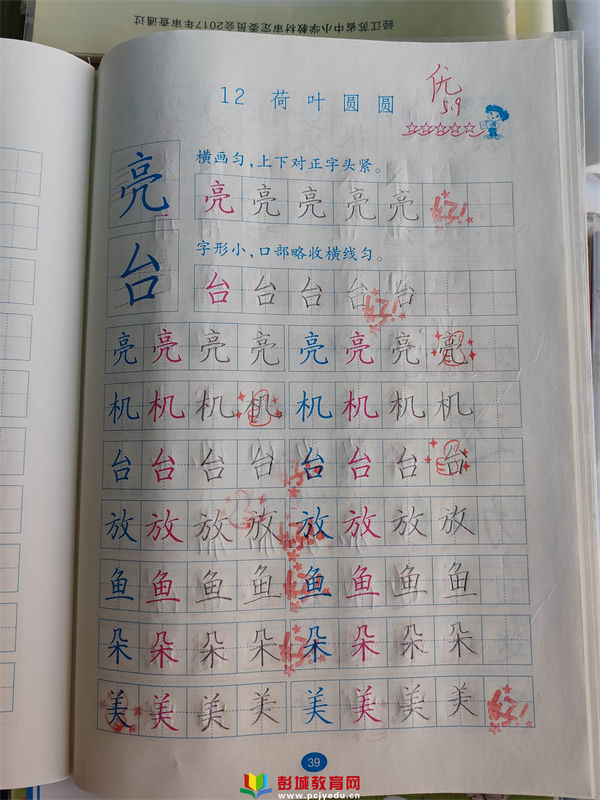 经江苏省中小学教材审定委员会2017年审查通过
12 荷叶圆圆
优
5.9
亮
横画匀，上下对正字头紧。
亮 亮 亮 亮 亮
台
字形小，口部略收横线匀。
台 台 台 台 台
亮 亮 亮 亮 亮 亮 亮 亮
机 机 机 机 机 机 机 机
台 台 台 台 台 台 台 台
放 放 放 放 放 放 放 放
鱼 鱼 鱼 鱼 鱼 鱼 鱼 鱼
朵 朵 朵 朵 朵 朵 朵 朵
美 美 美 美 美 美 美 美
39
彭城教育网
www.pcjyedu.cn